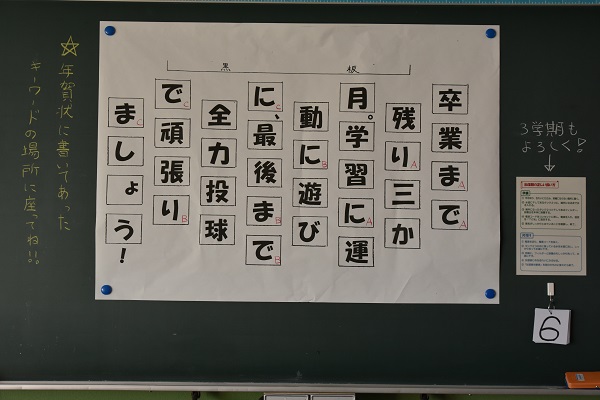 3学期も
よろしく!
6
黒 板
卒業まで
残り三か
月。学習に運
動に遊び
に、最後まで
全力投球
で頑張り
ましょう!
☆年賀状に書いてあった
キーワードの場所に座ってね!!